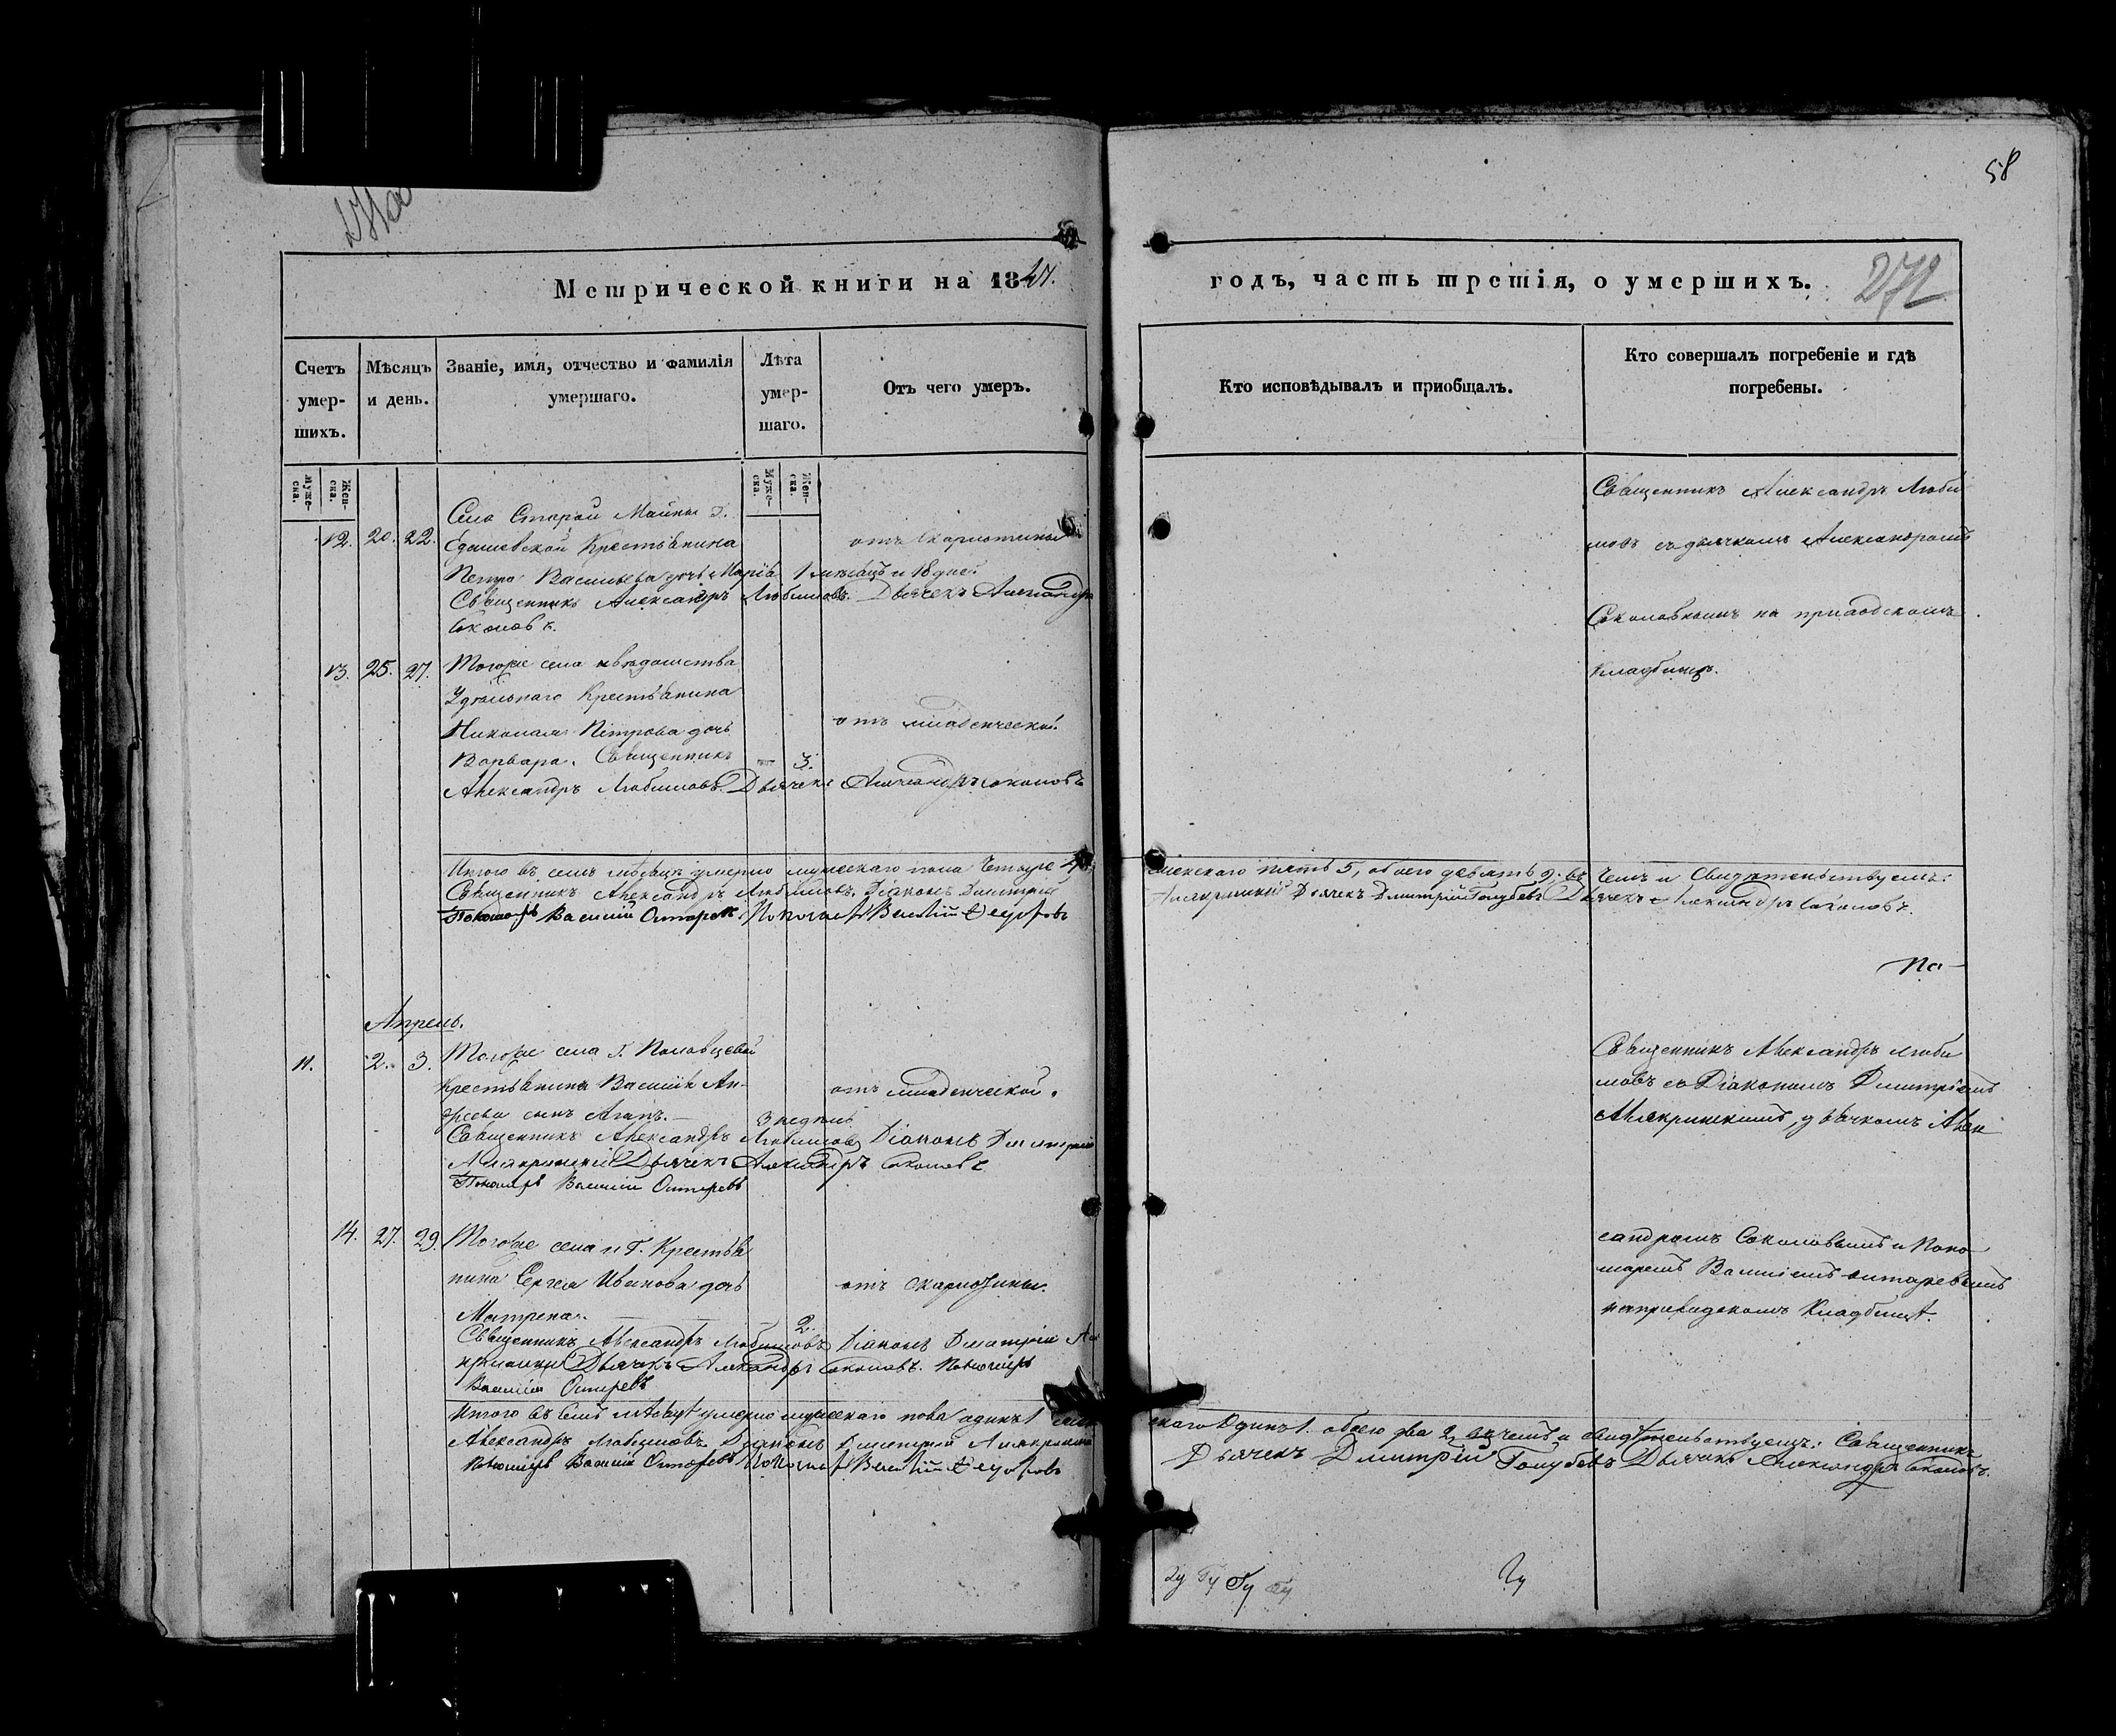 58
Метрической книги на 1847.
годъ, часть третія, о умершихъ.
272
Счетъ умер-шихъ.
Мѣсяцъ и день.
Званіе, имя, отчество и фамилія умершаго.
Лѣта умер-шаго.
Отъ чего умеръ.
Кто исповѣдывалъ и приобщалъ.
Кто совершалъ погребеніе и гдѣ погребены.
Муже-ска.
Жен-ска.
Муже-ска.
Жен-ска.
12. 20. 22.
Села Старой Майны г.
Крестьянина
отъ скарлотины
Петра Васильева дочь Марія 1 мѣсяцъ и 18 дней
Священникъ Александръ Любимовъ. Дьячекъ Александръ
Соколовъ.
Священникъ Александръ Люби
мовъ съ дьячкомъ Александромъ
Соколовымъ на приходскомъ
кладбищѣ.
13. 25. 27.
Тогоже села вѣдомства
Удѣльнаго Крестьянина
Николая Петрова дочь
отъ младенческой.
Варвара. Священникъ 3.
Александръ Любимовъ. Дьячекъ Александръ Соколовъ
Итого въ семъ мѣсяцѣ умерло мужескаго пола Четыре 4,
Священникъ Александръ Любимовъ. Діаконъ Димитрій
Пономарь Василій
Пономарь Василій
женскаго пять 5, обоего девять 9. въ чемъ и свидѣтельствуемъ:
Дьячекъ Димитрій Голубевъ Дьячекъ Александръ Соколовъ.
Апрель.
11. 2. 3.
Тогоже села г.
Крестьянина Василія Ан-
дреева сынъ
отъ младенческой.
3 недѣль
Священникъ Александръ Любимовъ Діаконъ Димитрій
Дьячекъ Александръ Соколовъ
Пономарь Василій
Священникъ Александръ Люби
мовъ съ Діакономъ Димитріемъ
дьячкомъ Алек
сандромъ Соколовымъ и Поно
маремъ Василіемъ
на приходскомъ Кладбищѣ.
14. 27. 29.
Тогоже села и г. Крестья
нина Сергея Иванова дочь
отъ скарлотины.
Матрена. 2.
Священникъ Александръ Любимовъ Діаконъ Димитрій
Дьячекъ Александръ Соколовъ. Пономарь
Василій
Итого въ семъ мѣсяцѣ умерло мужескаго пола одинъ 1
Александръ Любимовъ Діаконъ Димитрій
Пономарь Василій
Пономарь Василій
скаго Одинъ 1. обоего два 2, въ чемъ и свидѣтельствуемъ: Священникъ
Дьячекъ Димитрій Голубевъ Дьячекъ Александръ Соколовъ.